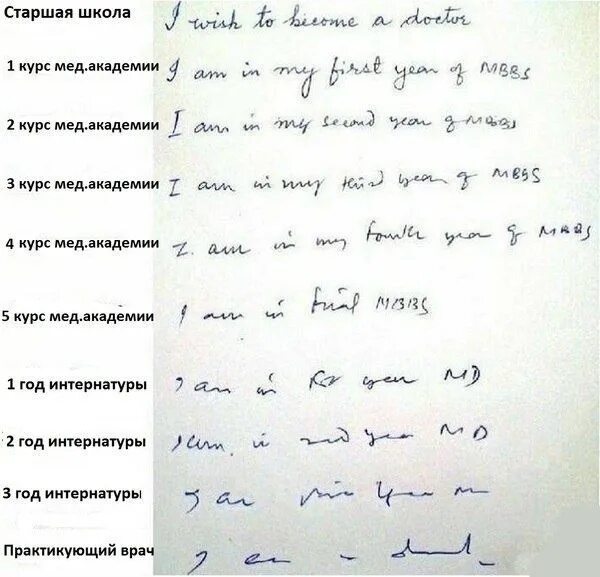 Старшая школа I wish to become a doctor
1 курс мед.академии I am in my first year of MBBS
2 курс мед.академии I am in my second year of MBBS
3 курс мед.академии I am in my third year of MBBS
4 курс мед.академии I am in my fourth year of MBBS
5 курс мед.академии I am in final MBBS
1 год интернатуры I am in 1st year MD
2 год интернатуры I am in 2nd year MD
3 год интернатуры I am year
Практикующий врач I am